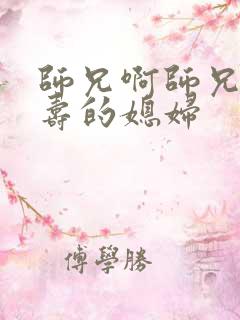 師兄啊師兄
壽的媳婦
傅學勝